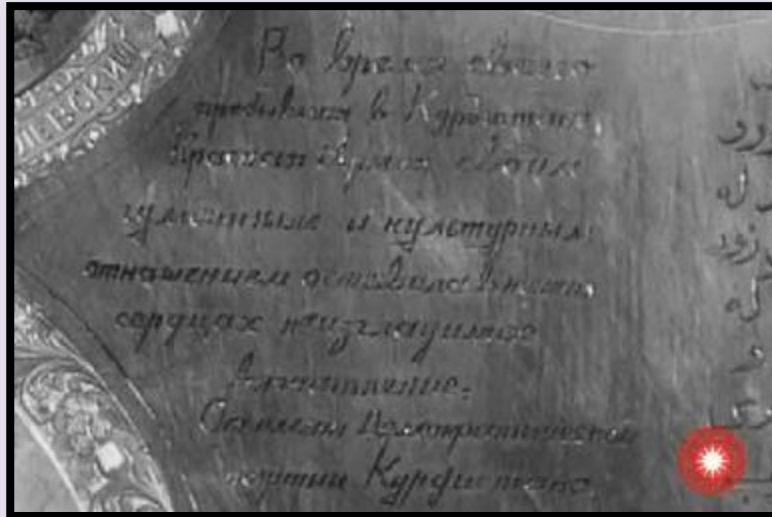 ЛЕВСКИЙ
Во время своего
пребывания в Курдистане
Красная Армия своим
гуманным и культурным
отношением оставила в наших
сердцах неизгладимое
впечатление.
Основатели Демократической
партии Курдистана